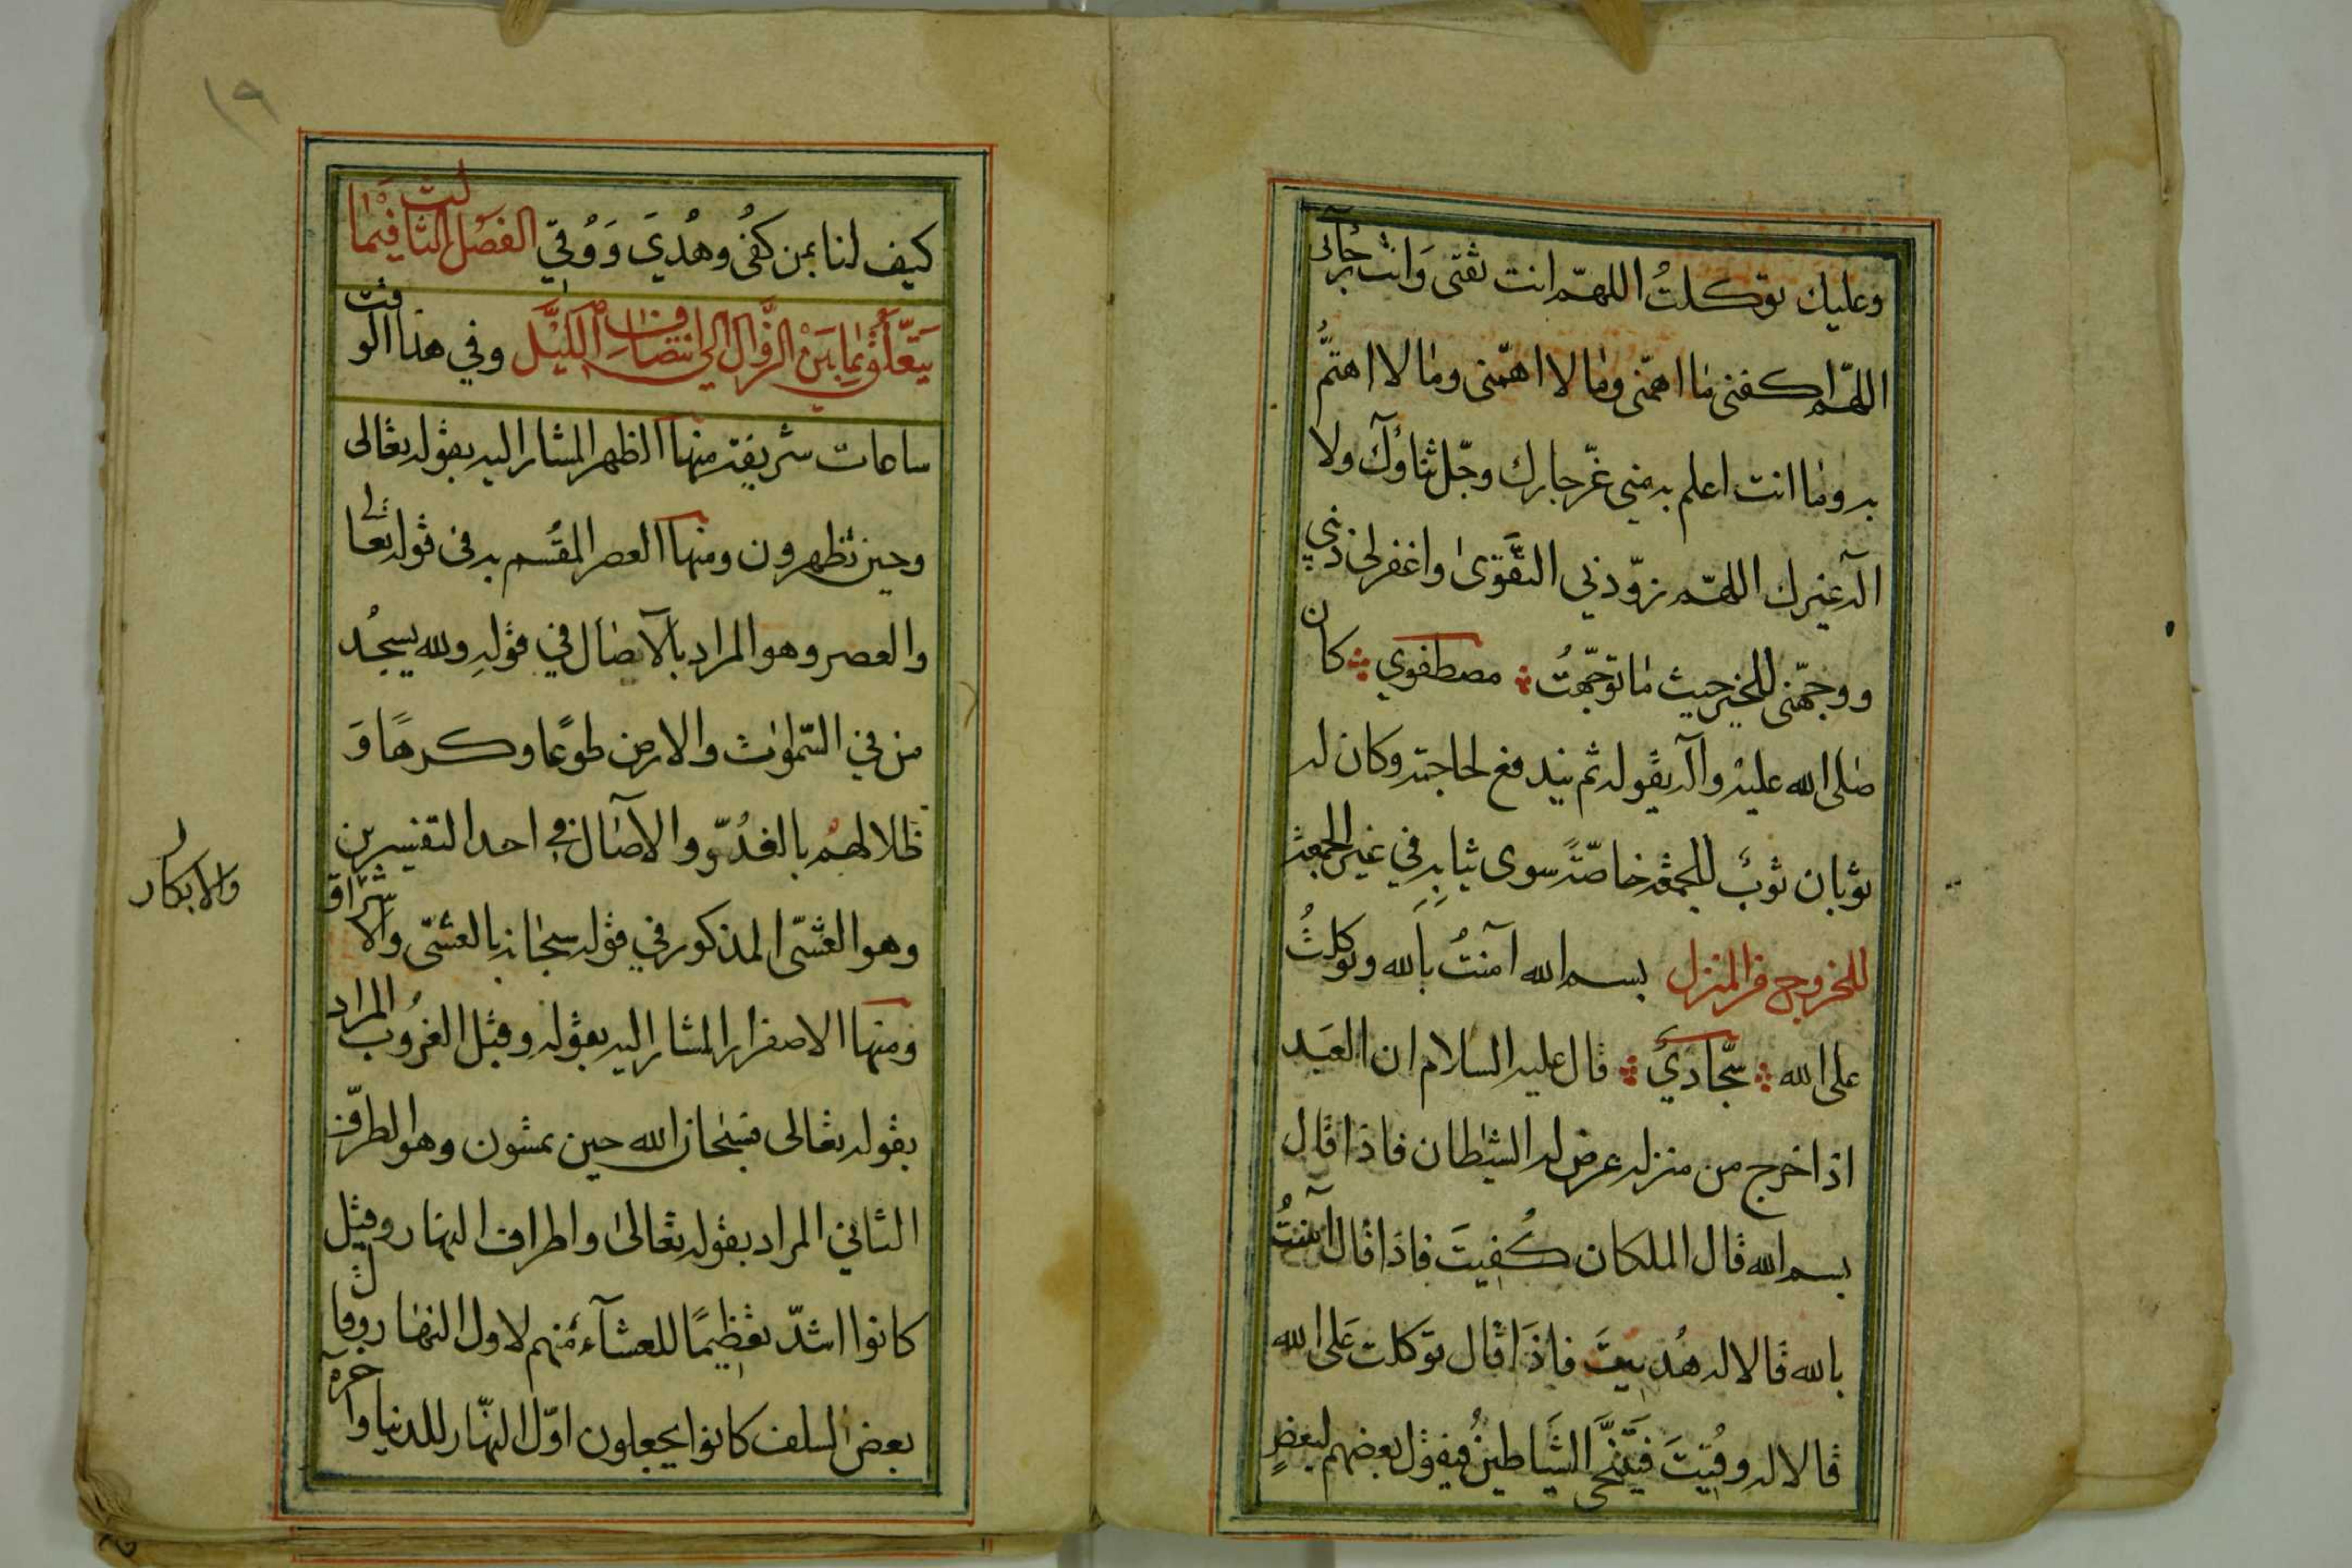 وعليك توكلتُ اللهمّ انت ثقتى وَانت رجآئى
اللهمّ اكفنى مٰا اهمّنى ومٰا لا اهمّنى ومٰا لا اهتمُّ
به ومٰا انت اعلم به منّي عزّ جارك وجّل ثناؤك ولآ
اله غيرك اللهمّ زوّدني التّقوىٰ واغفر لى ذنبي
ووجّهنى للخير حيث مٰا توجّهتُ مصطفوي كان
صلى الله عليه وآله يقوله ثم يندفع لحاجته وكان له
ثوبان ثوبٌ للجمعة خاصّةً سوى ثيابِهِ في غير الجمعة
للخروج من المنزل بسم الله آمنتُ بالله وتوكلتُ
على الله سجّاديّ قال عليه السلام ان العَبد
اذا خرج من منزله عرض له الشيطان فاذا قال
بسم الله قال الملكان كُفِيتَ فاذَا قال آمنتُ
بالله قالا له هُديتَ فاذَا قال توكلت عَلى الله
قالا له وُقيتَ فَيَتَنَحّى الشّياطين فيقول بعضهم لبعضٍ
١٩
كيف لنا بمن كُفى وهُدِيَ وَوُقيَ الفصْل الثالث فيما
يَتَعَلّقُ بمٰا بَينَ الزَّوال الى انتصافِ اللّيْل وفي هذا الوقت
ساعات شريفة منها الظهر المشار اليه بقوله تعالى
وحين تظهرون ومنها العصر المقسَم به فى قوله تعالى
والعصر وهو المراد بالآصٰال في قولهِ ولله يسجُد
من في السّمٰوٰات والارض طوعًا وكرهًا وَ
ظلالهُم بالغدُوّ والآصٰال في احد التفسيرين
وهو العشّى المذكور في قوله سبحٰانه بالعشّى والاشراق
والابكار
ومنها الاصفرار المشار اليه بقوله وقبل الغرُوب المراد
بقوله تعالى فسبحان الله حين تمسُون وهو الطرَف
الثانى المراد بقوله تعالىٰ واطراف النهار وقيل
كانوا اشدّ تعظيمًا للعشآء منهم لاول النهٰار وقال
بعض السلف كانوا يجعلون اوّل النهّار للدنيا وآخره